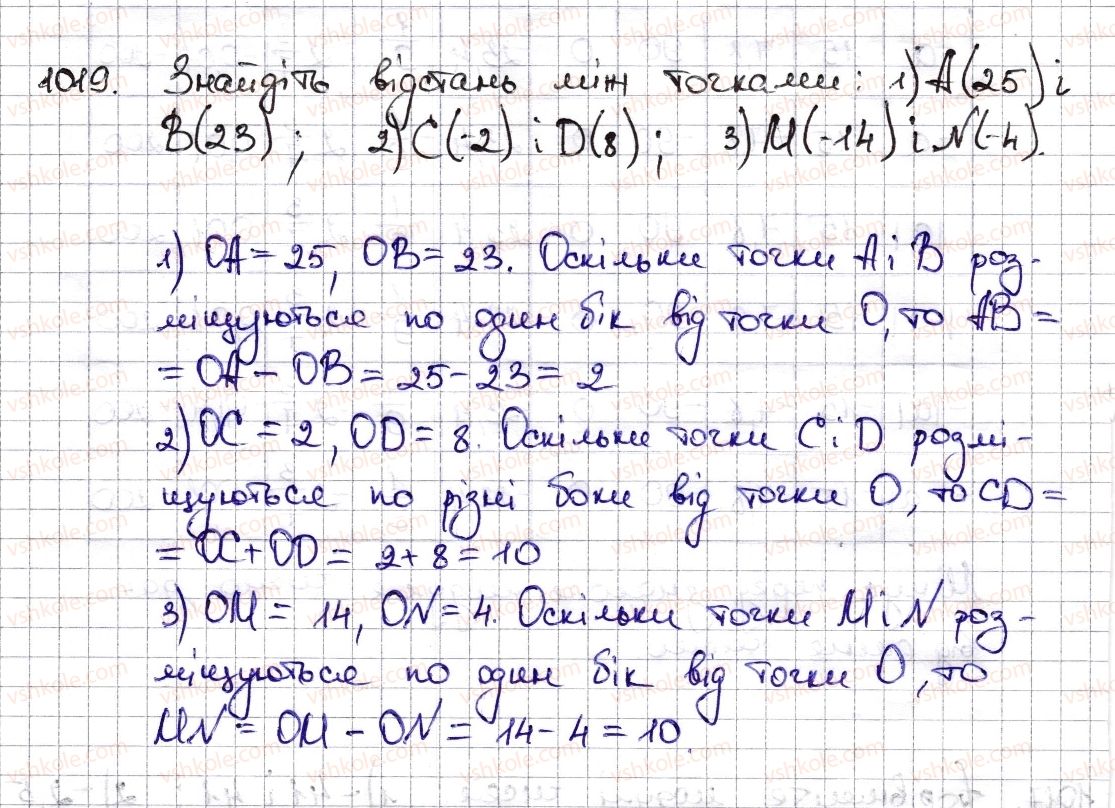 1019. Знайдіть відстань між точками: 1) A(25) і
B(23); 2) C(-2) і D(8); 3) M(-14) і N(-4).
1) OA = 25, OB = 23. Оскільки точки A і B роз-
міщуються по один бік від точки O, то AB =
= OA - OB = 25 - 23 = 2
2) OC = 2, OD = 8. Оскільки точки C і D розмі-
щуються по різні боки від точки O, то CD =
= OC + OD = 2 + 8 = 10
3) OM = 14, ON = 4. Оскільки точки M і N роз-
міщуються по один бік від точки O, то
MN = OM - ON = 14 - 4 = 10.